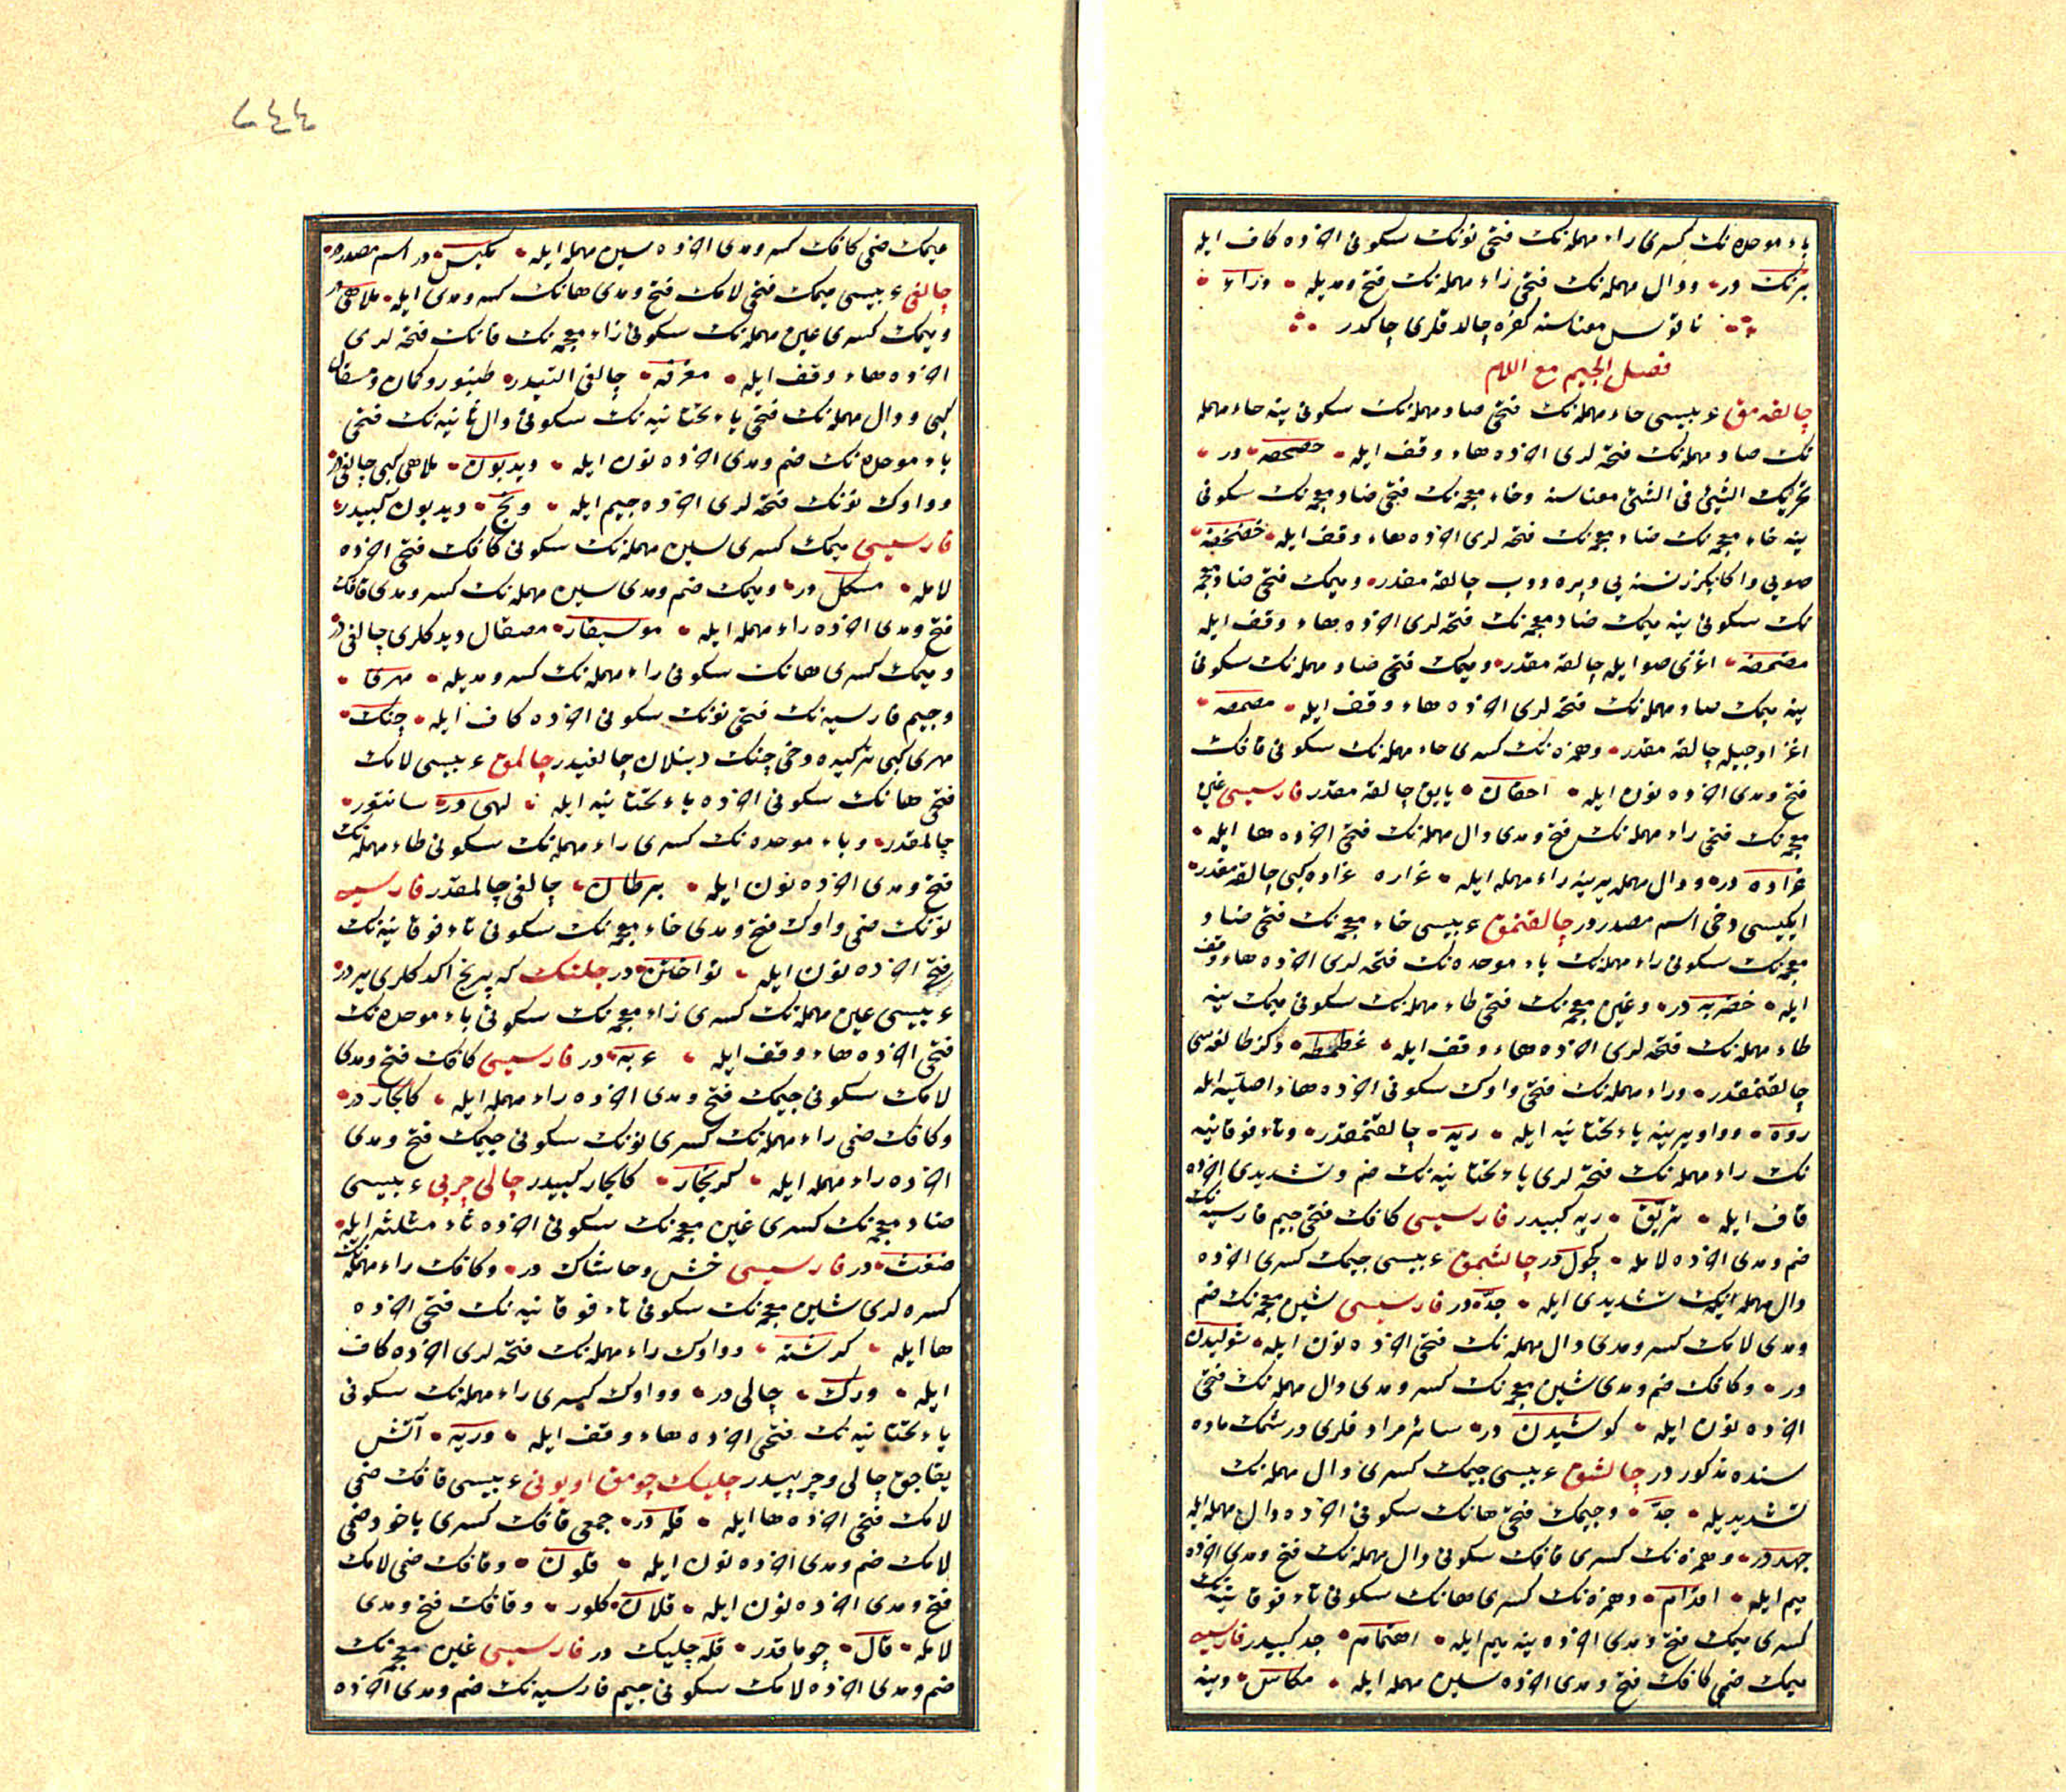 باء موحده نك كسرى راء مهمله نك فتحى نونك سكونى اخرده كاف ايله
برنك در ودال مهمله نك فتحى زاء مهمله نك فتح ومديله وزاء
ناقوس معناسنه كفره چالدقلرى چاكدر
فصل الجيم مع اللام
چالقه مق عربيسى حاء مهمله نك فتحى صاد مهمله نك سكونى ينه حاء مهمله
نك صاد مهمله نك فتحه لرى اخرده هاء وقف ايله حصحصه در
تحريك الشئ فى الشئ معناسنه وخاء معجمه نك فتحى ضاد معجمه نك سكونى
ينه خاء معجمه نك ضاد معجمه نك فتحه لرى اخرده هاء وقف ايله خضخضه
صويى واكا بكزر نسنه يى چالقه مقدر وميمك فتحى ضاد معجمه
نك سكونى ينه ميمك ضاد معجمه نك فتحه لرى اخرده هاء وقف ايله
مضمضه اغزى صو ايله چالقه مقدر وميمك فتحى صاد مهمله نك سكونى
ينه ميمك صاد مهمله نك فتحه لرى اخرده هاء وقف ايله مصمصه
اغز اوجيله چالقه مقدر وهمزه نك كسرى حاء مهمله نك سكونى قافك
فتح ومدى اخرده نون ايله احقان يايق چالقه مقدر فارسيسى غين
معجمه نك فتحى راء مهمله نك فتح ومدى دال مهمله نك فتحى اخرده ها ايله
غراده در ودال مهمله يرينه راء مهمله ايله غراره غراده كبى چالقه مقدر
ايكيسى دخى اسم مصدردر چالقنمق عربيسى خاء معجمه نك فتحى ضاد
معجمه نك سكونى راء مهمله نك باء موحده نك فتحه لرى اخرده هاء وقف
ايله خضربه در وغين معجمه نك فتحى طاء مهمله نك سكونى ميمك ينه
طاء مهمله نك فتحه لرى اخرده هاء وقف ايله غطمطه دكز طالغه سى
چالقنمقدر وراء مهمله نك فتحى واوك سكونى اخرده هاء اصليه ايله
روه وواو يرينه ياء تحتانيه ايله ريه چالقنمقدر وتاء فوقانيه
نك راء مهمله نك فتحه لرى ياء تحتانيه نك ضم وتشديدى اخرده
قاف ايله تريق ريه كبيدر فارسيسى كافك فتحى جيم فارسيه نك
ضم ومدى اخرده لامله كچول در چالشمق عربيسى جيمك كسرى اخرده
دال مهمله نك تشديدى ايله جد در فارسيسى شين معجمه نك ضم
ومدى لامك كسر ومدى دال مهمله نك فتحى اخرده نون ايله شوليدن
در وكافك ضم ومدى شين معجمه نك كسر ومدى دال مهمله نك فتحى
اخرده نون ايله كوشيدن در سائر مرادفلرى درشمك ماده
سنده مذكور در چالشق عربيسى جيمك كسرى دال مهمله نك
تشديديله جد وجيمك فتحى هانك سكونى اخرده دال مهمله ايله
جهد در وهمزه نك كسرى قافك سكونى دال مهمله نك فتح ومدى اخرده
ميم ايله اقدام وهمزه نك كسرى هانك سكونى تاء فوقانيه نك
كسرى ميمك فتح ومدى اخرده ينه ميم ايله اهتمام جد كبيدر فارسيسى
ميمك ضمى كافك فتح ومدى اخرده سين مهمله ايله مكاس وينه
٧٤٤
ميمك ضمى كافك كسر ومدى اخرده سين مهمله ايله مكيس در اسم مصدردر
چالغى عربيسى ميمك فتحى لامك فتح ومدى هانك كسر ومدى ايله ملاهى در
وميمك كسرى عين مهمله نك سكونى زاء معجمه نك فانك فتحه لرى
اخرده هاء وقف ايله معزفه چالغى التيدر طنبور وكمان ومسقال
كبى ودال مهمله نك فتحى ياء تحتانيه نك سكونى دال ثانيه نك فتحى
باء موحده نك ضم ومدى اخرده نون ايله ديدبون ملاهى كبى چالغى در
وواوك نونك فتحه لرى اخرده جيم ايله ونج ديدبون كبيدر
فارسيسى ميمك كسرى سين مهمله نك سكونى كافك فتحى اخرده
لامله مسكل در وميمك ضم ومدى سين مهمله نك كسر ومدى قافك
فتح ومدى اخرده راء مهمله ايله موسيقار مصقال ديدكلرى چالغى در
وميمك كسرى هانك سكونى راء مهمله نك كسر ومديله مهرى
وجيم فارسيه نك فتحى نونك سكونى اخرده كاف ايله چنك
مهرى كبى تركيده دخى چنك دينلان چالغيدر چالمق عربيسى لامك
فتحى هانك سكونى اخرده ياء تحتانيه ايله لهى در سانتور
چالمقدر وباء موحده نك كسرى راء مهمله نك سكونى طاء مهمله نك
فتح ومدى اخرده نون ايله برطان چالغى چالمقدر فارسيسى
نونك ضمى واوك فتح ومدى خاء معجمه نك سكونى تاء فوقانيه نك
فتحى اخرده نون ايله نواختن در چلتك كه پرنج اكدكلرى يردر
عربيسى عين مهمله نك كسرى زاء معجمه نك سكونى باء موحده نك
فتحى اخرده هاء وقف ايله عزبه در فارسيسى كافك فتح ومدى
لامك سكونى جيمك فتح ومدى اخرده راء مهمله ايله كالجار در
وكافك ضمى راء مهمله نك كسرى نونك سكونى جيمك فتح ومدى
اخرده راء مهمله ايله كرنجار كالجار كبيدر چالى چرپى عربيسى
ضاد معجمه نك كسرى غين معجمه نك سكونى اخرده ثاء مثلثه ايله
ضغث در فارسيسى خش وخاشاك در وكافك راء مهمله نك
كسره لرى شين معجمه نك سكونى تاء فوقانيه نك فتحى اخرده
ها ايله كرشته وواوك راء مهمله نك فتحه لرى اخرده كاف
ايله ورك چالى در وواوك كسرى راء مهمله نك سكونى
ياء تحتانيه نك فتحى اخرده هاء وقف ايله وريه آتش
يقاجق چالى وچرپيدر چليك چومق اويونى عربيسى قافك ضمى
لامك فتحى اخرده ها ايله قله در جمعى قافك كسرى ياخود ضمى
لامك ضم ومدى اخرده نون ايله قلون وقافك ضمى لامك
فتح ومدى اخرده نون ايله قلان كلور وقافك فتح ومدى
لامله قال چوماقدر قله چليك در فارسيسى غين معجمه نك
ضم ومدى اخرده لامك سكونى جيم فارسيه نك ضم ومدى اخرده